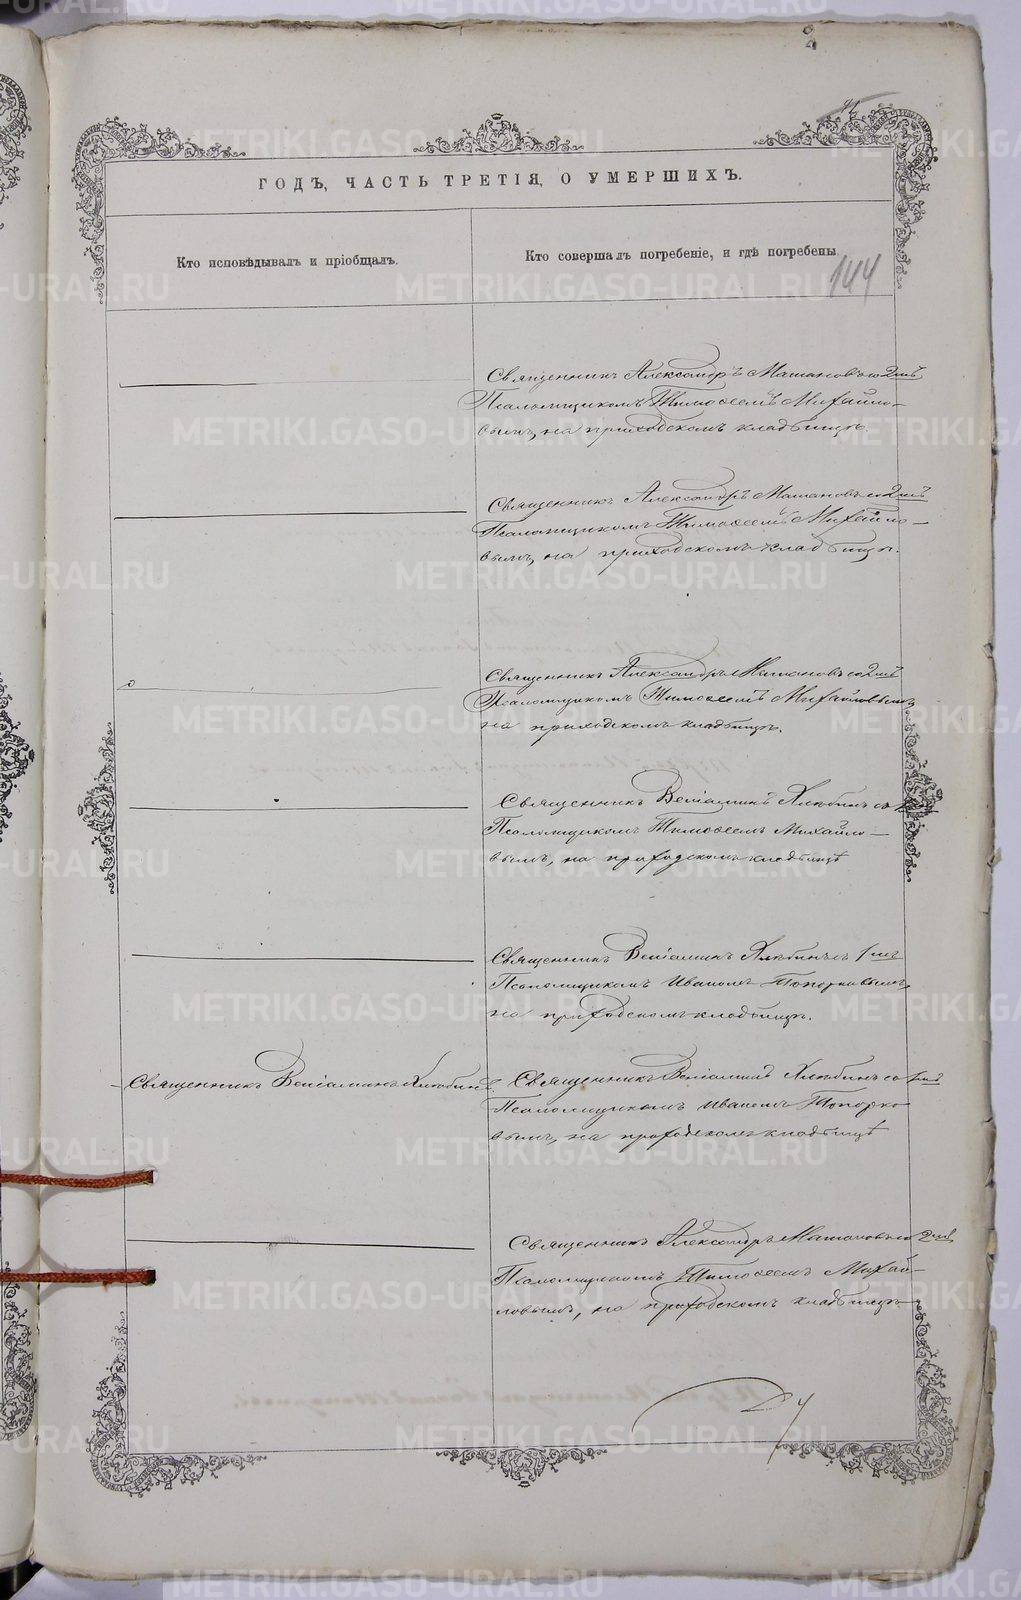 ГОДЪ, ЧАСТЬ ТРЕТІЯ, О УМЕРШИХЪ.
Кто исповѣдывалъ и пріобщалъ.
Кто совершалъ погребеніе, и гдѣ погребены
144
Священникъ Александръ Машановъ со 2мъ
Псаломщикомъ Тимоѳеемъ Михайло-
вымъ, на приходскомъ кладбищѣ.
Священникъ Александръ Машановъ со 2мъ
Псаломщикомъ Тимоѳеемъ Михайло-
вымъ, на приходскомъ кладбищѣ.
Священникъ Александръ Машановъ со 2мъ
Псаломщикомъ Тимоѳеемъ Михайловымъ
на приходскомъ кладбищѣ.
Священникъ Веніаминъ Хлѣбинъ со
Псаломщикомъ Тимоѳеемъ Михайло-
вымъ, на приходскомъ кладбищѣ
Священникъ Веніаминъ Хлѣбинъ съ 1мъ
Псаломщикомъ Иваномъ Топорковымъ,
на приходскомъ кладбищѣ.
Священникъ Веніаминъ Хлѣбинъ.
Священникъ Веніаминъ Хлѣбинъ со 1мъ
Псаломщикомъ Иваномъ Топорко
вымъ, на приходскомъ кладбищѣ
Священникъ Александръ Машановъ со 2мъ
Псаломщикомъ Тимоѳеемъ Михай-
ловымъ, на приходскомъ кладбищѣ
METRIKI.GASO-URAL.RU